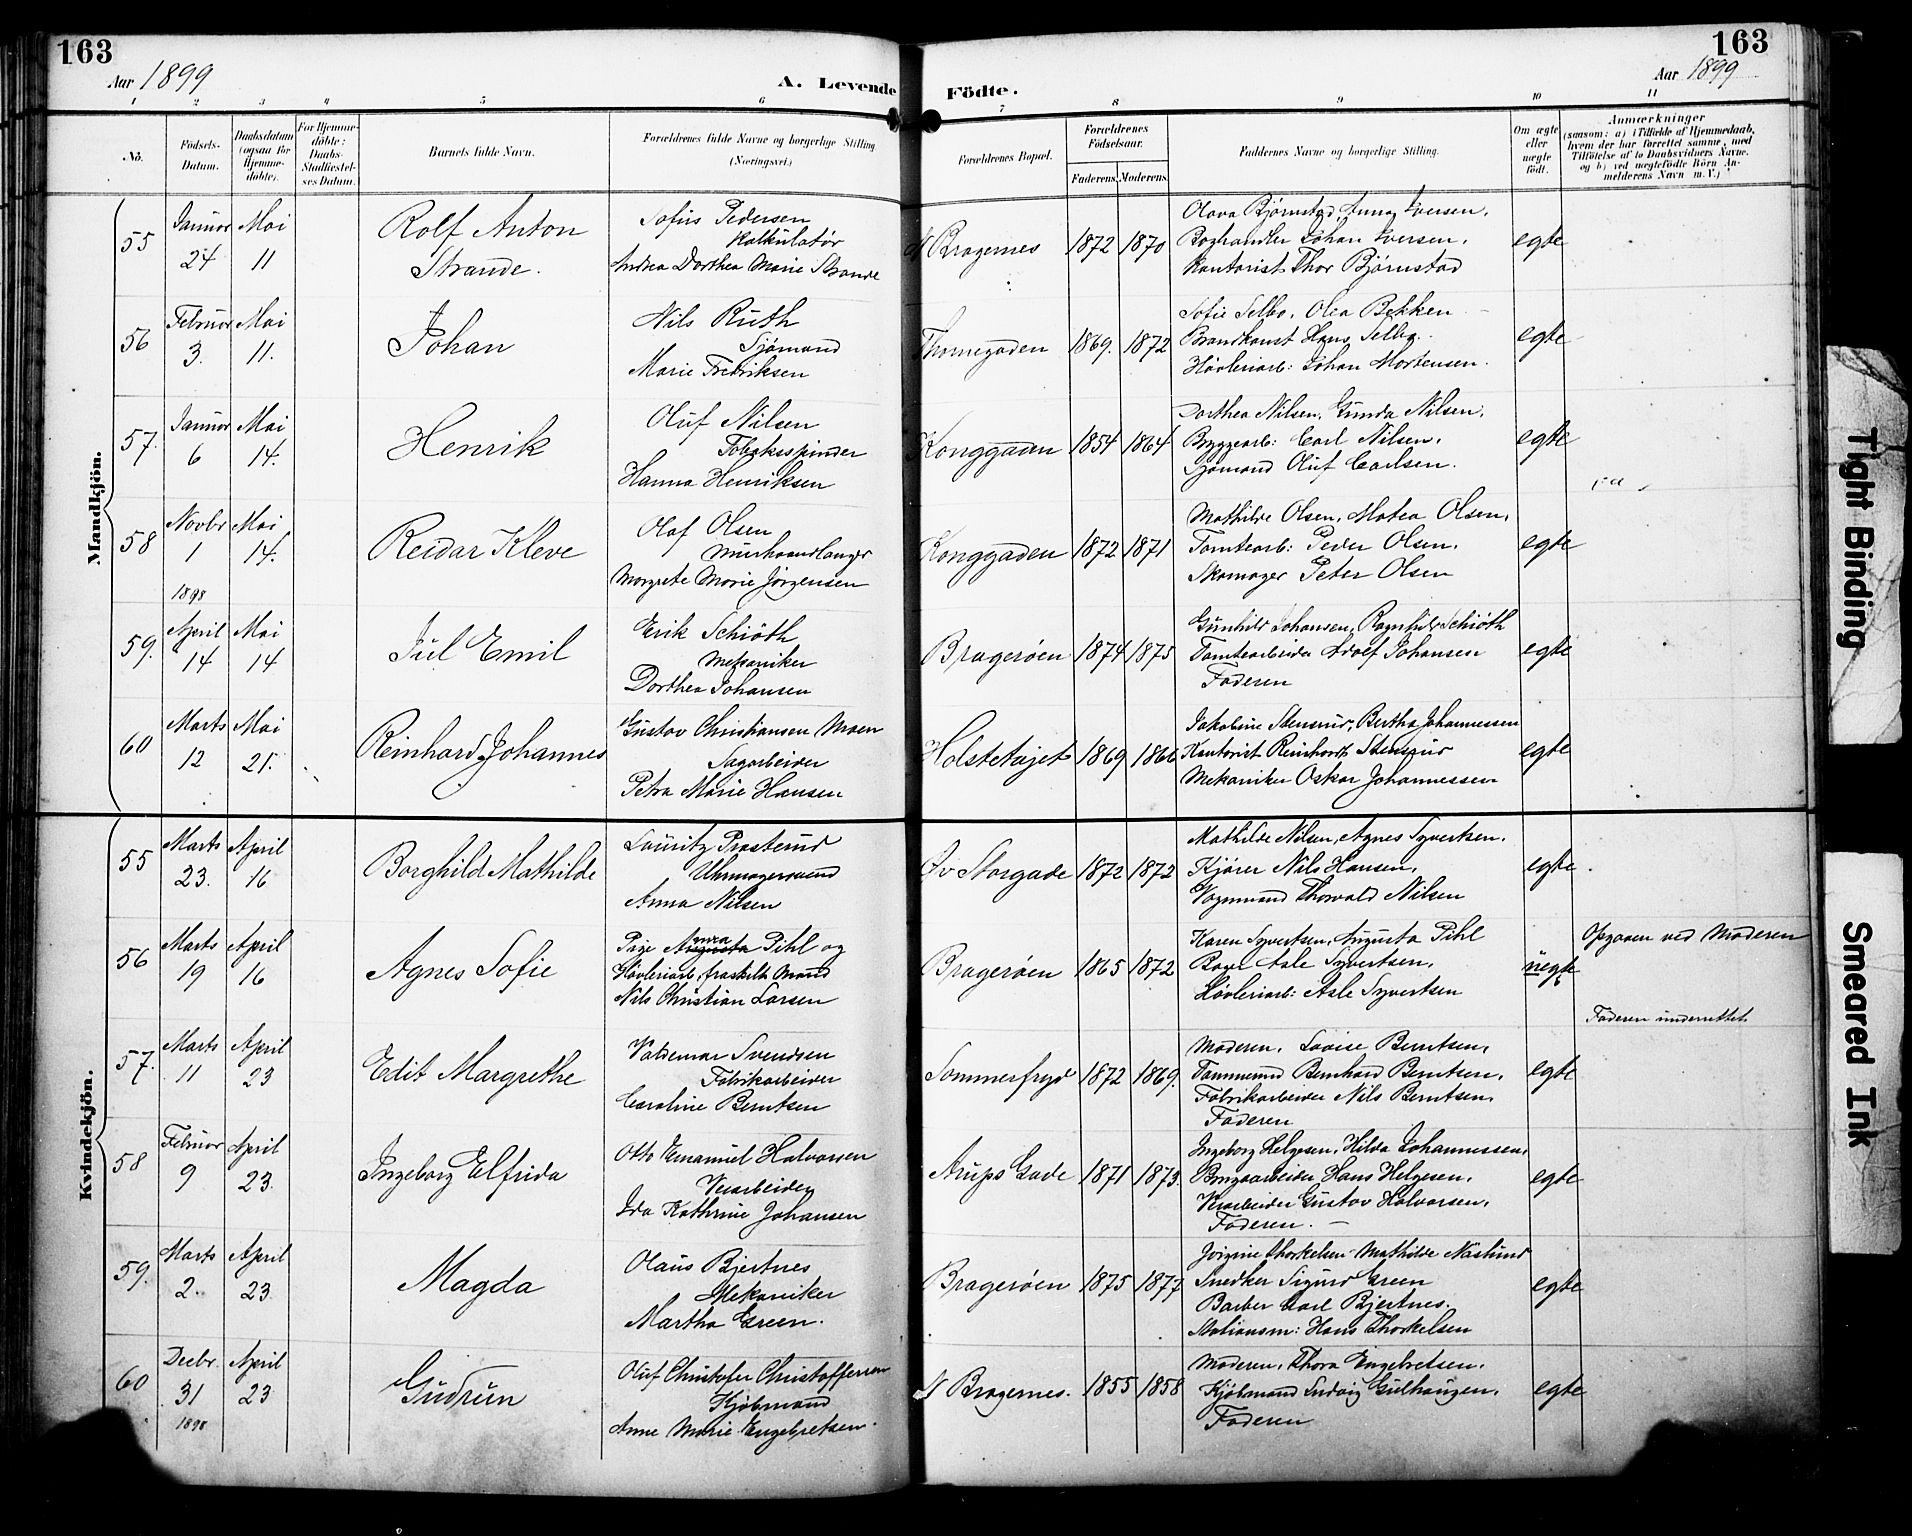 163
163
Aar 1899
A. Levende
Födte.
Aar 1899
1 2 3 4 5 6
7 8 9 10 11
No.
Födsels-Datum.
Daabsdatum (ogsaa for Hjemme-döbte).
For Hjemme-döbte: Daabs-Stadfæstel-ses Datum.
Barnets fulde Navn.
Forældrenes fulde Navne og borgerlige Stilling (Næringsvei.)
Forældrenes Bopæl.
Forældrenes Födselsaar.
Faderens. Moderens.
Faddernes Navne og borgerlige Stilling.
Om ægte eller uægte födt.
Anmærkninger
(saasom: a) i Tilfælde af Hjemmedaab, hvem der har forrettet samme, med Tilföielse af to Daabsvidners Navne. og b) ved uægtefödte Börn An-melderens Navn m. V.)
Mandkjön.
55
Januar 24
Mai 11
Rolf Anton Strande.
Sofus Pedersen
Kalkulatør
Andrea Dorthea Marie Strande
N Bragernes
1872
1870
Olava Bjørnstad, Anna Iversen,
Boghandler Johan Iversen,
Kontorist Thor Bjørnstad
egte
56
Februar 3.
Mai 11.
Johan
Nils Ruth
Sjømand
Marie Fredriksen
Thomegaden
1869.
1872
Sofie Selbo, Olea Bekken
Brandkonst Hans Selbo.
Høvleriarb: Johan Mortensen.
egte
57.
Januar 6
Mai 14.
Henrik
Oluf Nilsen
Tobaksspinder
Hanna Henriksen
Konggaden
1854
1864
Dorthea Nilsen, Gunda Nilsen,
Bryggearb: Carl Nilsen,
Sjømand Oluf Carlsen.
egte
58
Novbr 1
1898
Mai 14.
Reidar Kleve
Olaf Olsen
Murhaandlanger
Margrete Marie Jørgensen
Konggaden
1872
1871
Mathilde Olsen, Matea Olsen,
Tomtearb: Peder Olsen,
Skomager Peter Olsen
egte
59.
April 14
Mai 14
Jul Emil
Erik Schiöth
Mekaniker
Dorthea Johansen
Bragerøen
1874
1875
Gunhild Johansen, Ragnhild Schiöth
Tomtearbeider Adolf Johansen
Faderen
egte
60
Marts 12
Mai 21.
Reinhard Johannes
Gustav Christiansen Moen
Sagarbeider
Petra Marie Hansen
Holstetøjet
1869
1866
Jakobine Stensrud, Bertha Johannessen
Kontorist Reinhardt Stensrud
Mekaniker Oskar Johannessen
egte
Kvindekjön.
55
Marts 23.
April 16
Borghild Mathilde
Lauritz Prosterud
Uhrmagersvend
Anna Nilsen
Øv Storgade
1872
1872
Mathilde Nilsen, Agnes Syvertsen.
Kjører Nils Hansen,
Vognmand Thorvald Nilsen
egte.
56
Marts 19
April 16
Agnes Sofie
Pige Anna Augusta Pihl og
Høvleriarb, fraskilt Mand
Nils Christian Larsen
Bragerøen
1865
1872
Karen Syvertsen, Augusta Pihl
Asle Syvertsen,
Høvleriarb: Asle Syvertsen
uegte
Opgaven ved Moderen
Faderen underrettet
57.
Marts 11
April 23
Edit Margrethe
Valdemar Svendsen
Fabrikarbeider
Caroline Berntsen
Sommerfryd
1872
1869.
Moderen, Lovise Berntsen,
Tømmermd Bernhard Berntsen,
Fabrikarbeider Nils Berntsen,
Faderen
egte
58
Februar 9
April 23.
Ingeborg Elfrida
Otto Emanuel Halvorsen
Veiarbeider
Ida Kathrine Johansen
Arups Gade
1871
1873.
Ingeborg Helgesen, Hilda Johannessen,
Brugsarbeider Hans Helgesen,
Veiarbeider Gustav Halvorsen,
Faderen. —
egte
59.
Marts 2.
April 23
Magda
Olaus Bjertnes
Mekaniker
Martha Green.
Bragerøen
1875
1877
Jørgine Thorkelsen Mathilde Näslund
Snedker Sigurd Green
Barber Carl Bjertnes.
Stationsm: Hans Thorkelsen
egte
60
Decbr. 31
1898
April 23
Gudrun
Oluf Christofer Christoffersen
Kjøbmand
Anne Marie Engebretsen
N Bragernes.
1855
1858
Moderen, Thora Engebretsen,
Kjøbmand Ludvig Gulhaugen,
Faderen
egte
Tight Binding
Smeared Ink